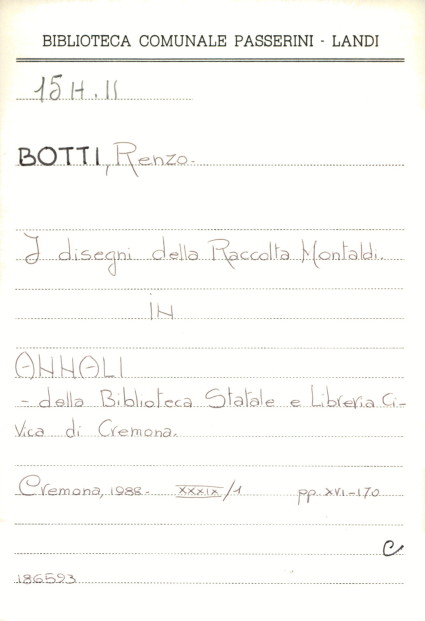 BIBLIOTECA COMUNALE PASSERINI - LANDI
15 H. II
BOTTI, Renzo.
I disegni della Raccolta Montaldi.
IN
ANNALI
- della Biblioteca Statale e Libreria Ci-
vica di Cremona.
Cremona, 1988. XXXIX/1 pp. XVI-170
C
186593